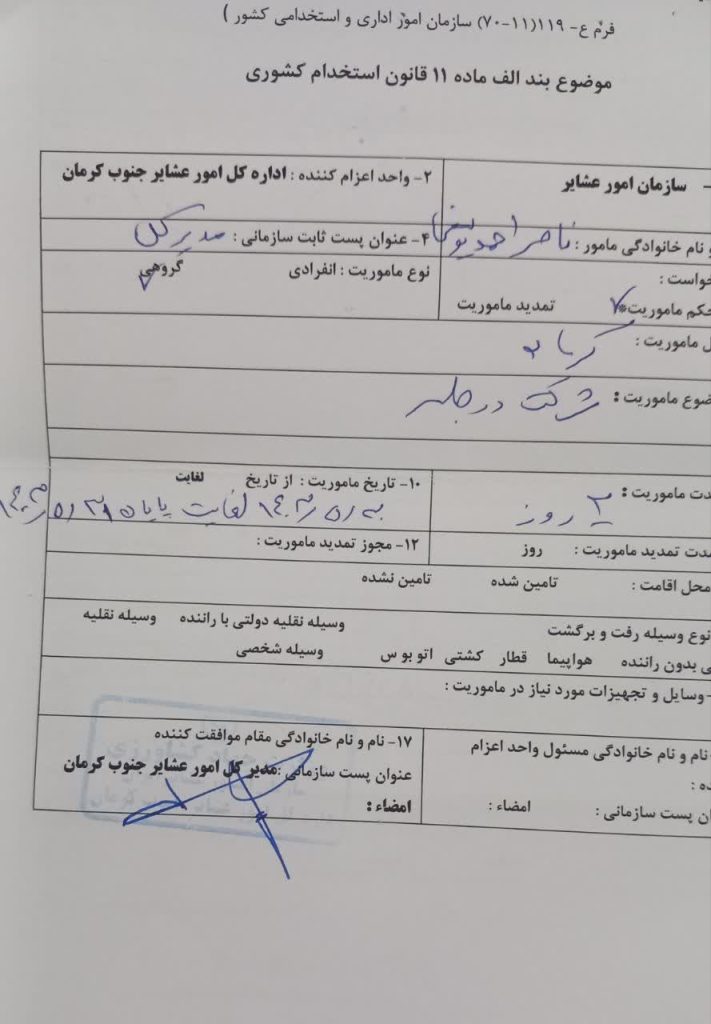 فرم ع- ۱۱۹(۱۱-۷۰) سازمان امور اداری و استخدامی کشور )
موضوع بند الف ماده ۱۱ قانون استخدام کشوری
- سازمان امور عشایر
۲- واحد اعزام کننده : اداره کل امور عشایر جنوب کرمان
و نام خانوادگی مامور : ناصر احمد
۴- عنوان پست ثابت سازمانی : مدیر کل
خواست :
حکم ماموریت* تمدید ماموریت
نوع ماموریت : انفرادی گروهی
ل ماموریت : کرمان
ضوع ماموریت : شرکت در جلسه
دت ماموریت : روز
۱۰- تاریخ ماموریت : از تاریخ لغایت
لغایت پایان
مدت تمدید ماموریت : روز
۱۲- مجوز تمدید ماموریت :
محل اقامت : تامین شده تامین نشده
نوع وسیله رفت و برگشت وسیله نقلیه دولتی با راننده وسیله نقلیه
ی بدون راننده هواپیما قطار کشتی اتو بو س وسیله شخصی
- وسایل و تجهیزات مورد نیاز در ماموریت :
نام و نام خانوادگی مسئول واحد اعزام
ده :
ان پست سازمانی : امضاء :
۱۷- نام و نام خانوادگی مقام موافقت کننده
عنوان پست سازمانی : مدیر کل امور عشایر جنوب کرمان
امضاء :